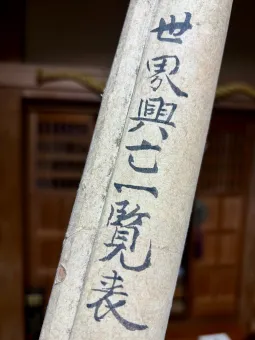 世界興亡一覧表